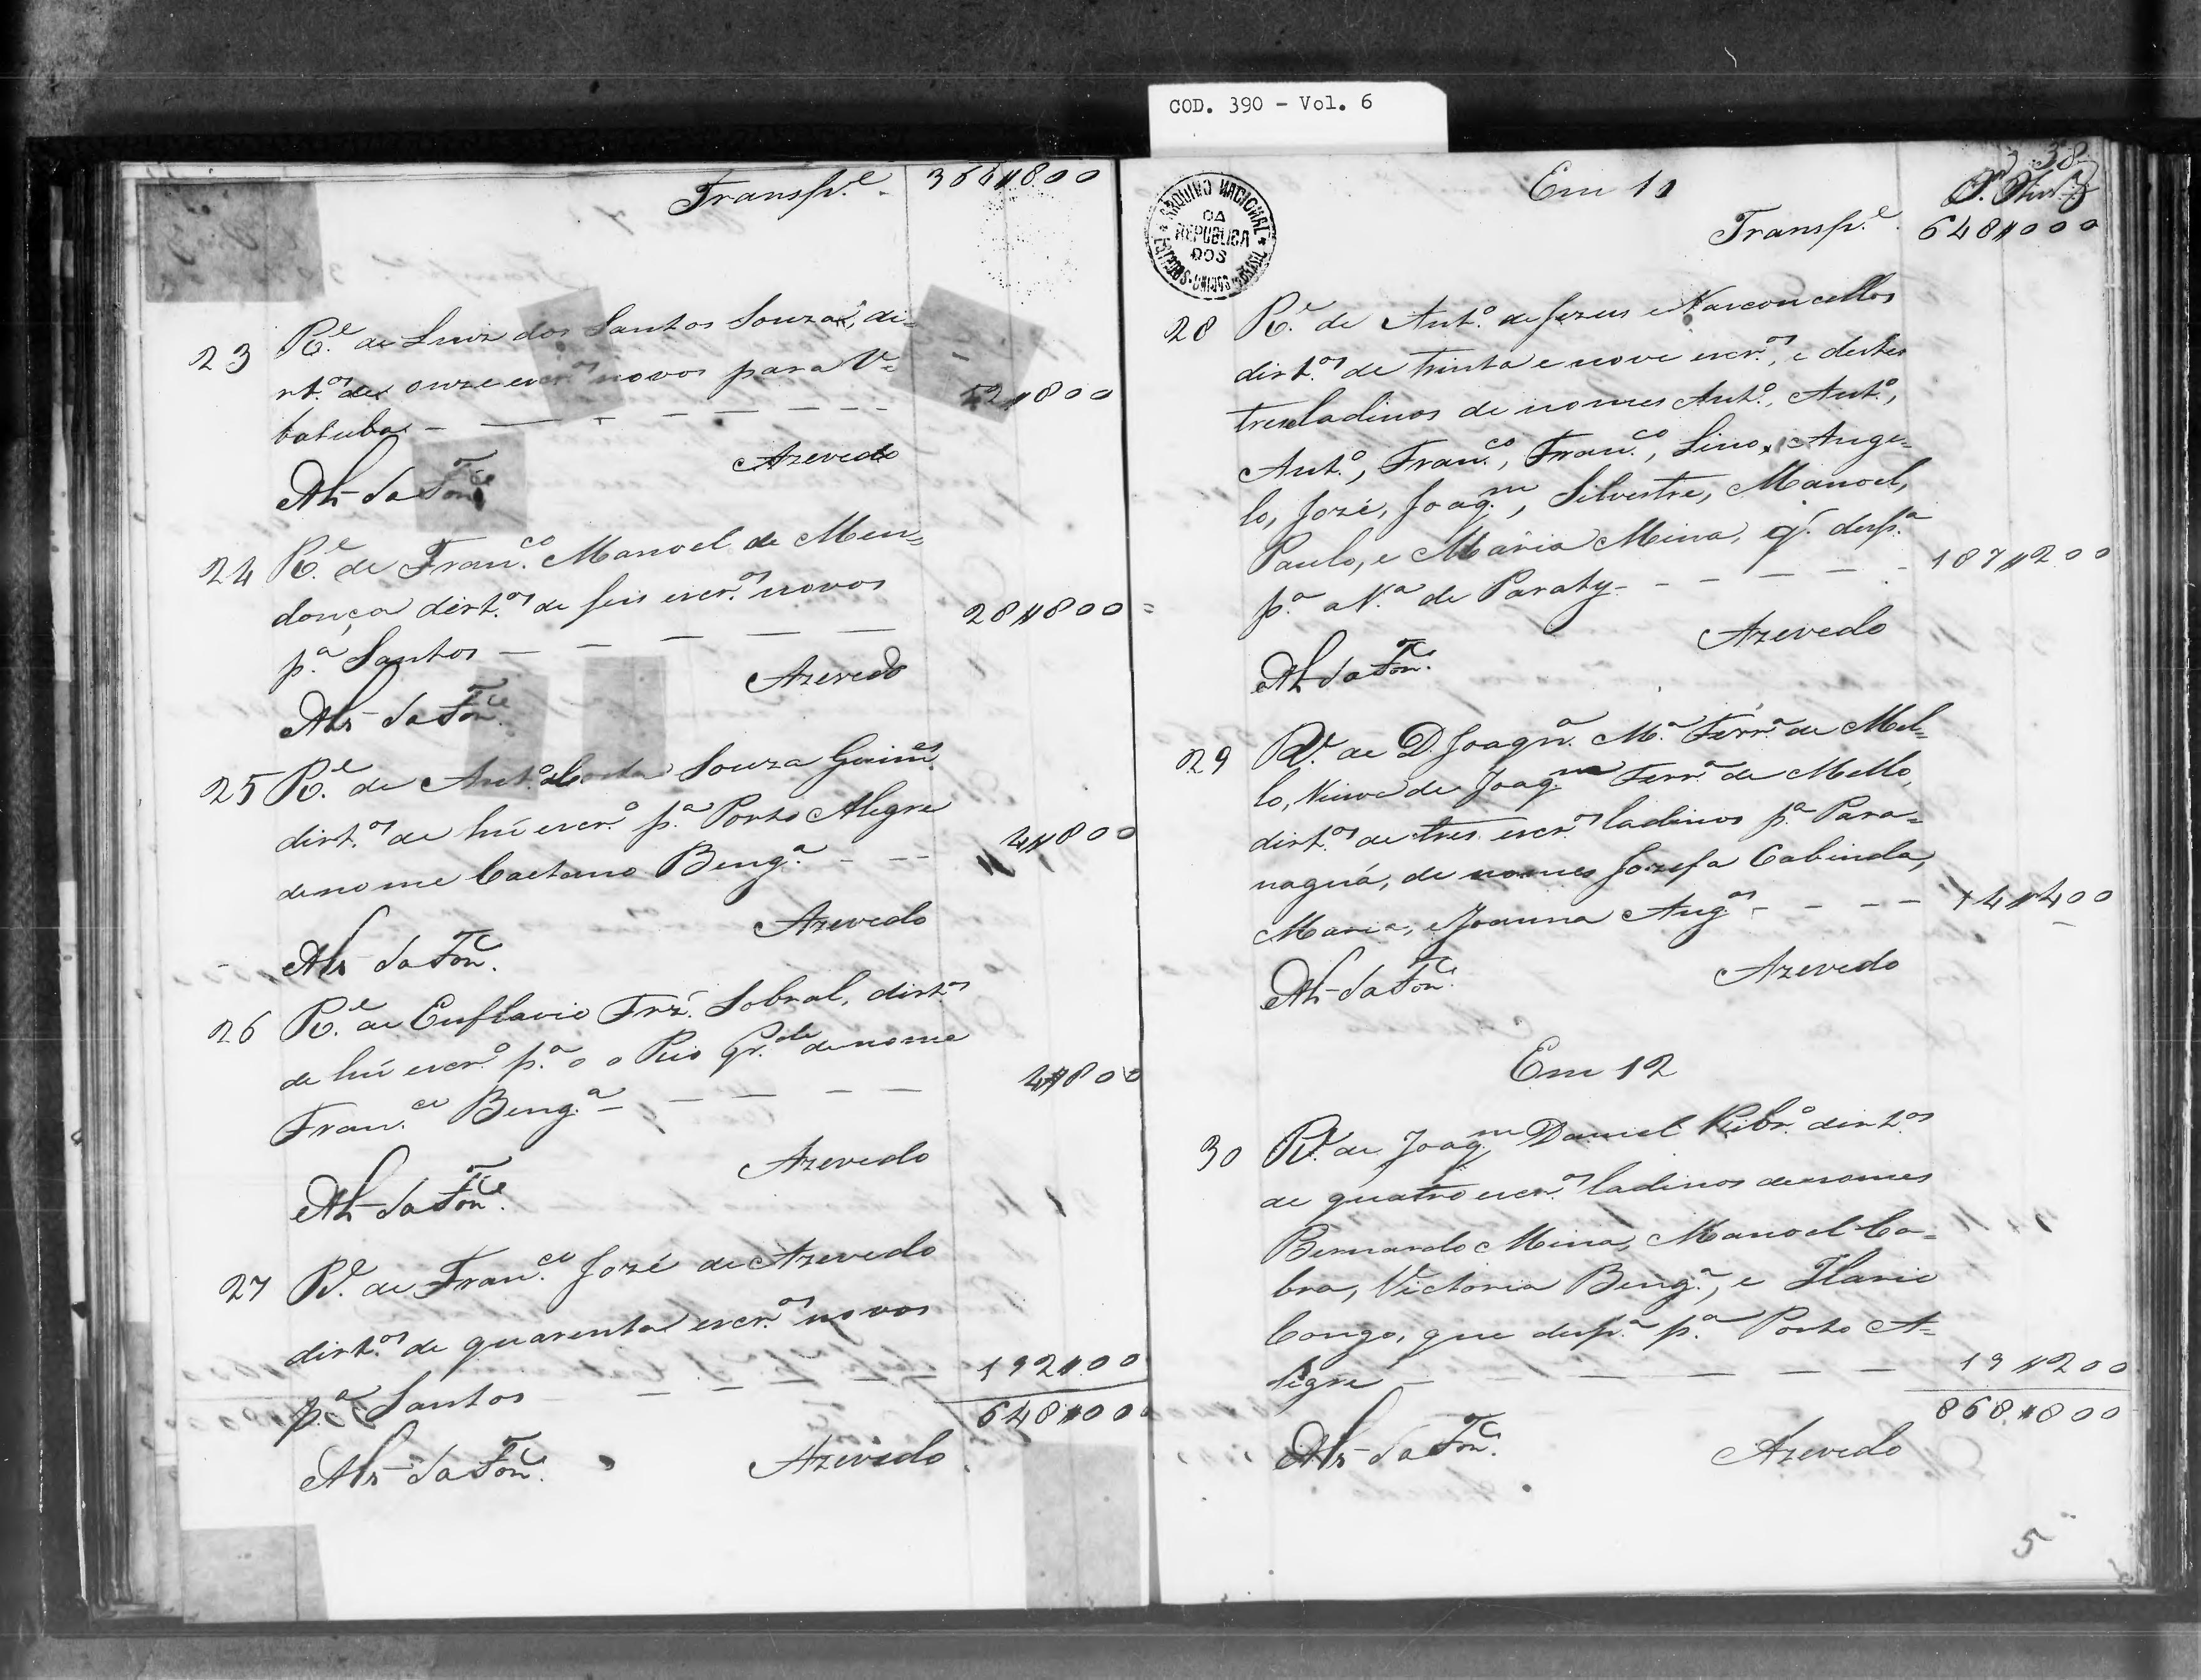 COD. 390 - Vol. 6
Transp.e 364$800
23 R.e de Luiz dos Santos Souza, di-
rt.os de onze escr.os novos para U-
batuba - - - - - - 52$800
Azevedo
Als da Fon.ce
24 R.e de Fran.co Manoel de Men-
donça dirt.os de seis escr.os novos
p.a Santos - - - - - 28$800
Azevedo
Als da Fon.ce
25 R.e de Ant.o da Costa Souza Guim.es
dirt.os de hũ escr.o p.a Porto Alegre
de nome Caetano Beng.a - - - 4$800
Azevedo
Als da Fon.ce
26 R.e de Euflavio Frz. Sobral, dirt.os
de hũ escr.o p.a o o Rio Gr.de de nome
Fran.co Beng.a - - - - - 4$800
Azevedo
Als da Fon.ce
27 R.e de Fran.co José de Azevedo
dirt.os de quarenta escr.os novos
p.a Santos - - - - - 192$00
648$000
Als da Fon.ce Azevedo
ARQUIVO NACIONAL
DA
REPUBLICA
DOS
ESTADOS-UNIDOS BRASIL
38
Em 11
Transp.e 648$000
28 R.e de Ant.o de Jezus e Vasconcellos
dirt.os de trinta e nove escr.os, e destes
treze ladinos de nomes Ant.o, Ant.o,
Ant.o, Fran.co, Fran.co, Lino, Ange-
lo, José, Joaq.m, Silvestre, Manoel,
Paulo, e Maria Mina, q. desp.a
p.a a V.a de Paraty - - - - - 187$200
Azevedo
Als da Fon.ce
29 R.e de D. Joaqn.a M.a Ferr.a de Mel-
lo, Viuva de Joaq.m Ferr.a de Mello,
dirt.os de tres escr.os ladinos p.a Para-
naguá, de nomes Jozefa Cabinda,
Maria, e Joanna Ang.as - - - - 14$400
Azevedo
Als da Fon.ce
Em 12
30 R.e de Joaq.m Daniel Ribr.o dirt.os
de quatro escr.os ladinos de nomes
Bernardo Mina, Manoel Ca-
bra, Victoria Beng.a, e Ilario
Congo, que desp.a p.a Porto A-
legre - - - - - - 19$200
868$800
Als da Fon.ce Azevedo
5